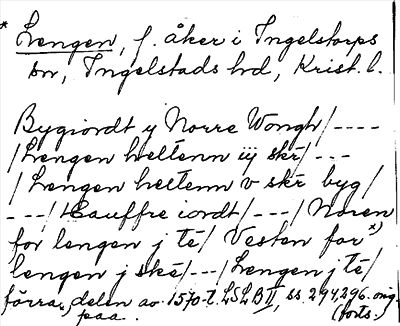 * Lengen, f. åker i Ingelstorps
sn, Ingelstads hd, Krist. l.
Bygiordt y Norre Wongh/----
/Lengen heltenn iij skr/---
/Lengen heltenn v skr byg/
---/Hauffre iordt/---/Noren
for lengen j te/ Vesten for x)
lengen j ske/---/Lengen j te/
förra x) delen av 1570-t. LSLB II, ss. 294, 296. orig.
paa. (forts.)